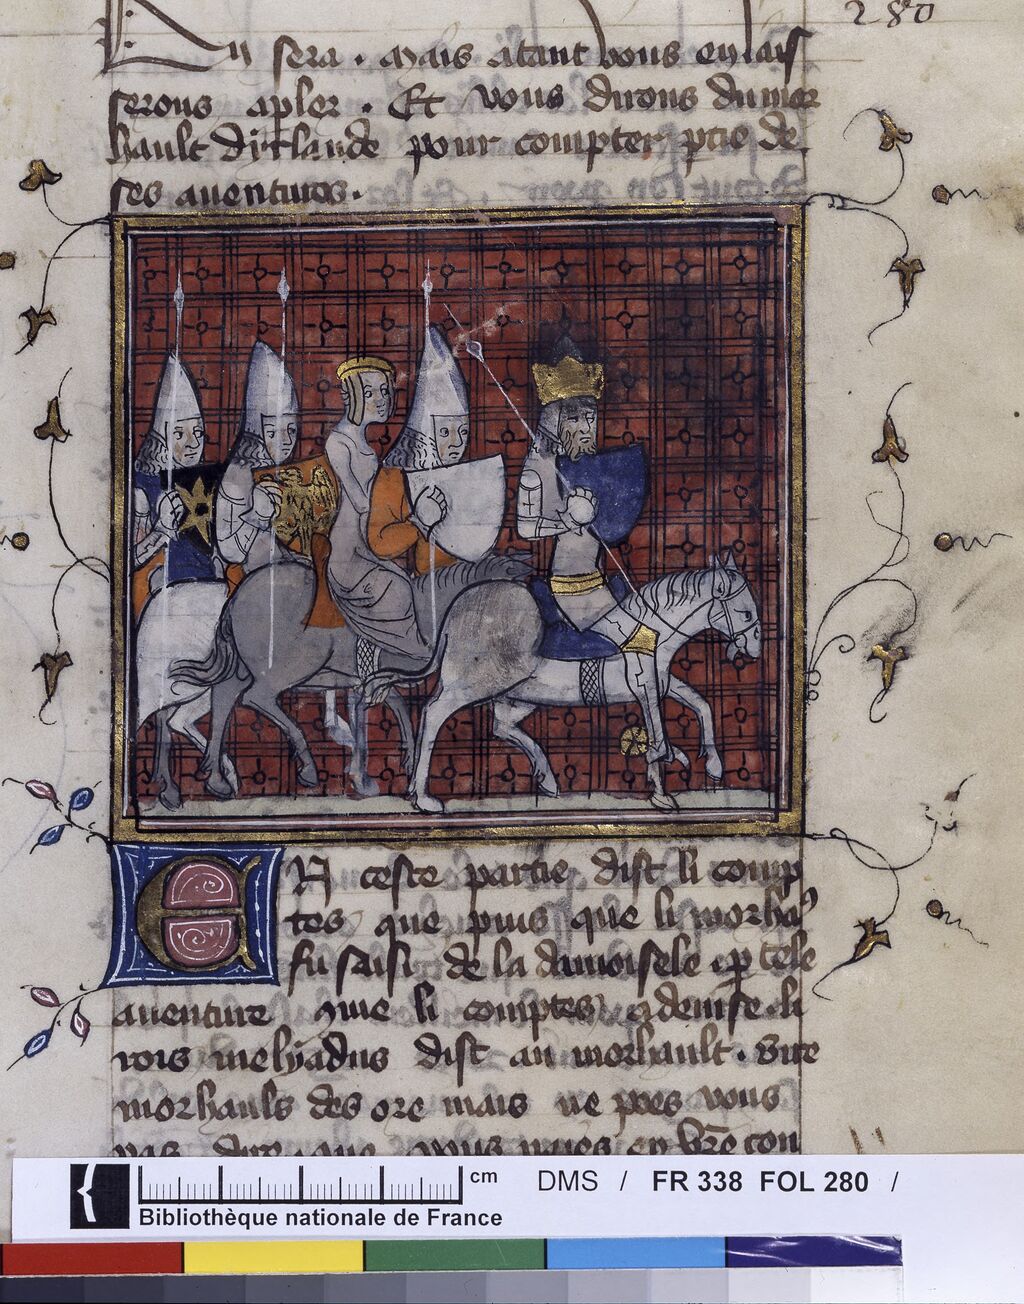 280
En sera. Mais atant vous en lais
serons apler. Et vous dirons du mor
hault dirlande pour compter ptie de
ses auentures.
EN ceste partie dist li comp
tes que puis que li morha
fu saisi de la damoisele. p tele
auenture que li comptes deuise. li
rois melyadus dist au morhault. Sire
morhauls des ore mais ne poes vous
pas dire que vous naies en vre con
cm
DMS / FR 338 FOL 280 /
Bibliothèque nationale de France